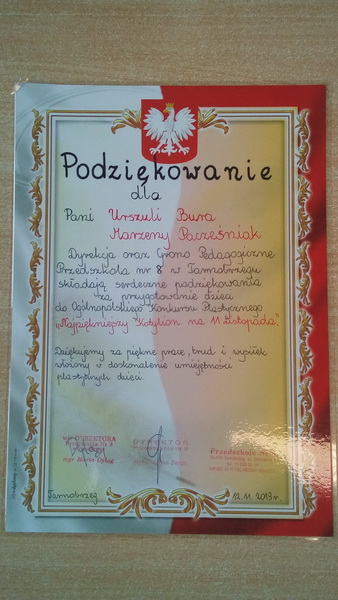 Podziękowanie
dla
Pani Urszuli Bura
Marzeny Pacześniak
Dyrekcja oraz Grono Pedagogiczne
Przedszkola nr 8 w Tarnobrzegu
składają serdeczne podziękowania
za przygotowanie dzieci
do Ogólnopolskiego Konkursu Plastycznego
„Najpiękniejszy Kotylion na 11 listopada”.
Dziękujemy za piękne prace, trud i wysiłek
włożony w doskonalenie umiejętności
plastycznych dzieci.
DYREKTORA
DYREKTOR
Przedszkole
mgr
Tarnobrzeg
12.11.2013 r.